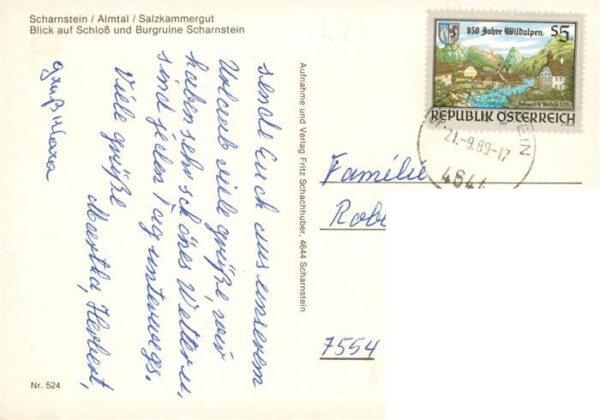 Scharnstein / Almtal / Salzkammergut
Blick auf Schloß und Burgruine Scharnstein
sende Euch aus unserem
Urlaub viele grüße, wir
haben sehr schönes Wetter u.
sind jeden Tag unterwegs.
Viele grüße
Martha, Herbert,
gruß
Nr. 524
Aufnahme und Verlag Fritz Schachhuber, 4644 Scharnstein
850 Jahre Wildalpen
S5
REPUBLIK ÖSTERREICH
21.-9.89-17
4644
Familie
Robe
7554